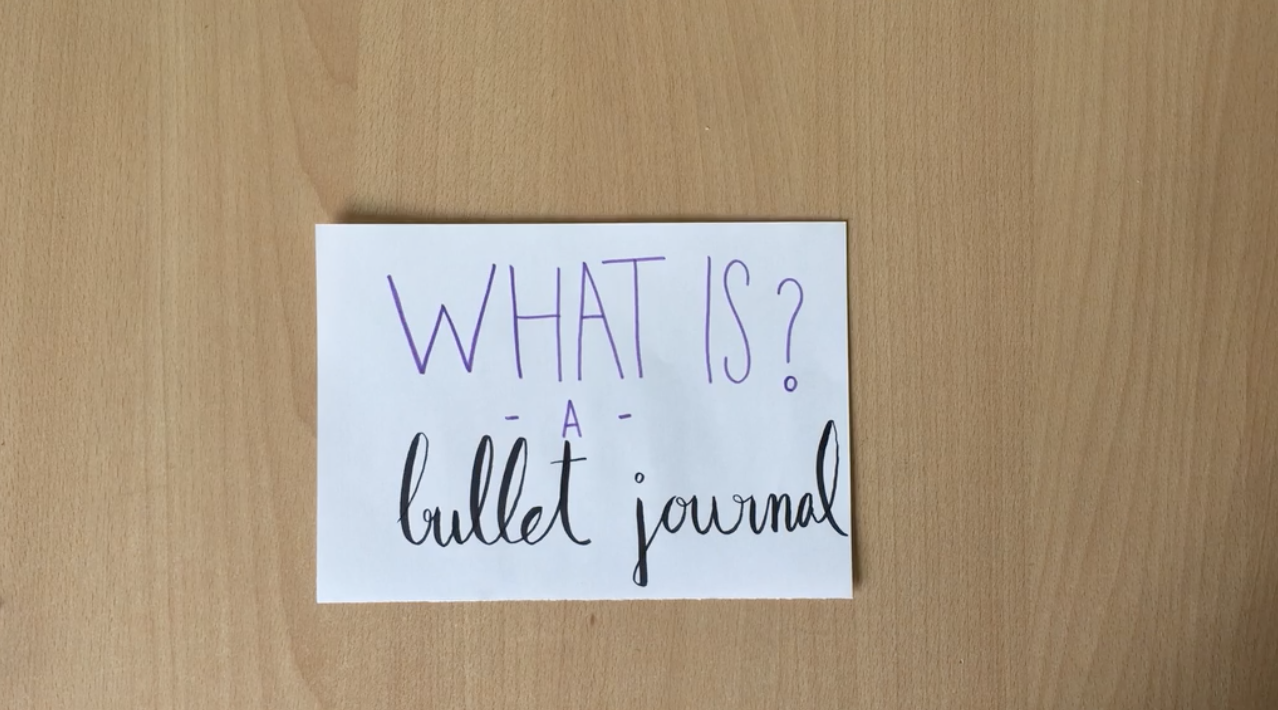 WHAT IS?
- A -
bullet journal